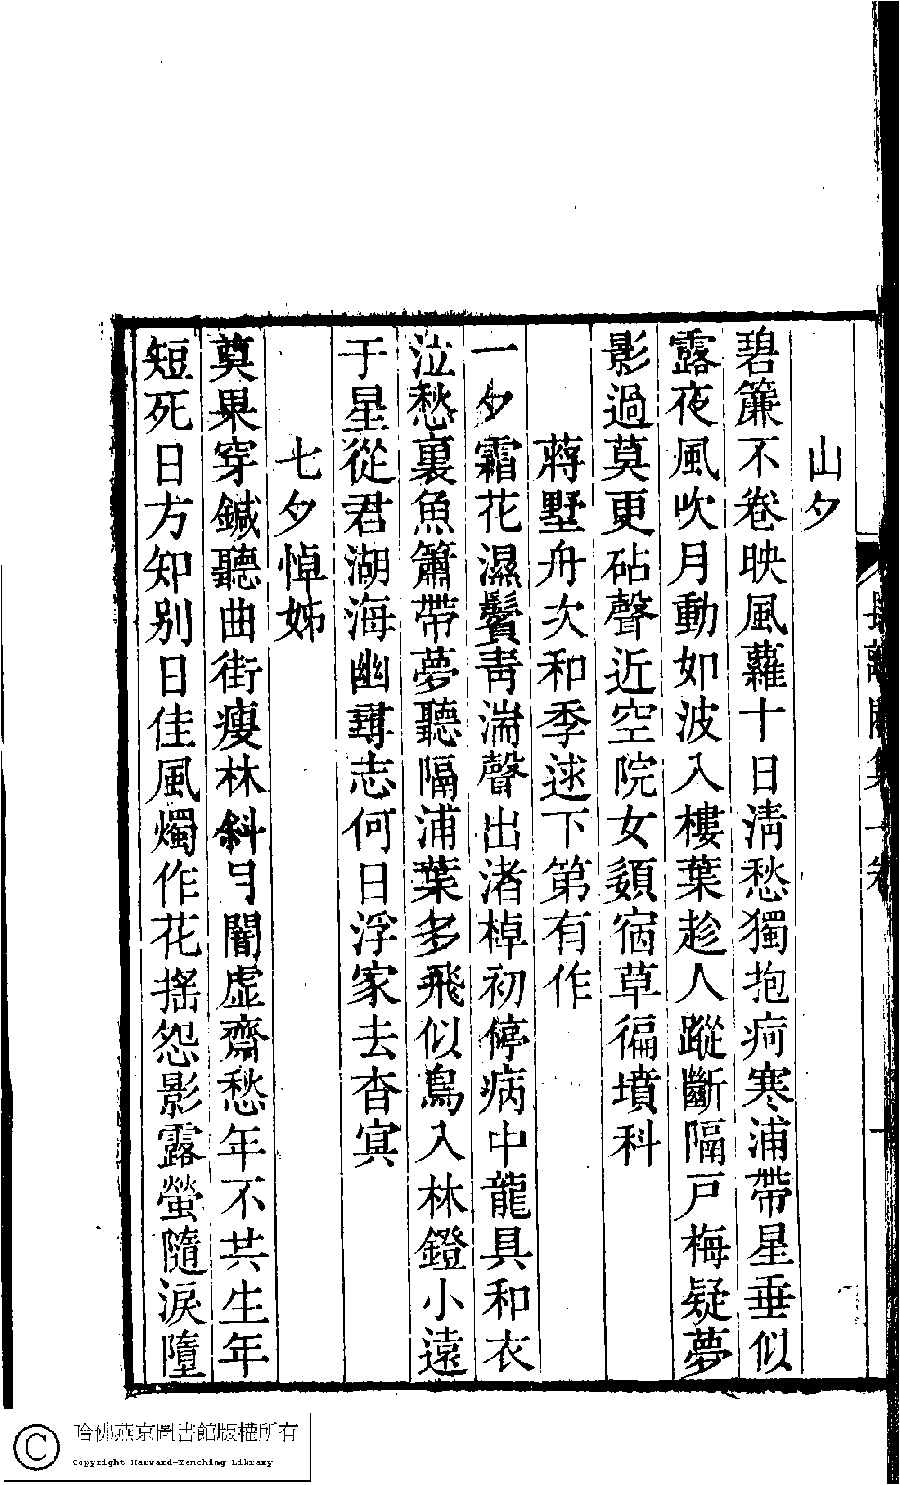 山夕
碧簾不卷映風蘿十日清愁獨抱疴寒浦帶星垂似
露夜風吹月動如波入樓葉趁人蹤斷隔戸梅疑夢
影過莫更砧聲近空院女顡宿草徧墳科
蔣墅舟次和季逑下第有作
一夕霜花濕鬢靑湍聲出渚棹初停病中龍具和衣
泣愁裏魚簫帶夢聽隔浦葉多飛似鳥入林鐙小遠
于星從君湖海幽尋志何日浮家去杳冥
七夕悼姊
奠果穿鍼聽曲街瘦林斜月闇虛齋愁年不共生年
短死日方知別日佳風燭作花搖怨影露螢隨淚墮
哈佛燕京圖書館版權所有
Copyright Harvard-Yenching Library